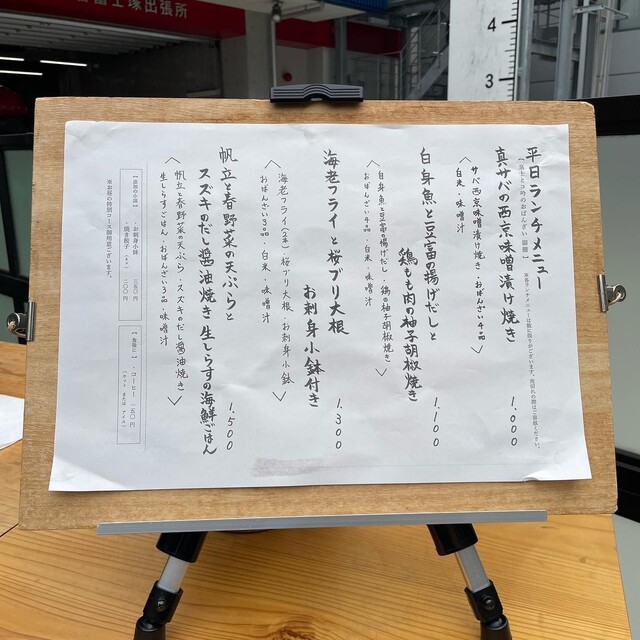 富士塚出張所
4
3
平日ランチメニュー
真サバの西京味噌漬け焼き 1,000
〈サバ西京味噌漬け焼き・おばんざい4品
・白米・味噌汁〉
白身魚と豆富の揚げだしと
鶏もも肉の柚子胡椒焼き 1,100
〈白身魚と豆富の揚げだし・鶏の柚子胡椒焼き・
おばんざい4品・白米・味噌汁〉
海老フライと桜ブリ大根
お刺身小鉢付き 1,300
〈海老フライ(2本)・桜ブリ大根・お刺身小鉢
おばんざい3品・白米・味噌汁〉
帆立と春野菜の天ぷらと
スズキのだし醤油焼き 生しらすの海鮮ごはん 1,500
〈帆立と春野菜の天ぷら・スズキのだし醤油焼き・
生しらすごはん・おばんざい3品・味噌汁〉
【追加の小鉢】
・お刺身小鉢 三五〇円
・焼き餃子 二〇〇円
【食後に】
・コーヒー 一五〇円
(ホット または アイス)
※お昼の特別コース御用意ございます。